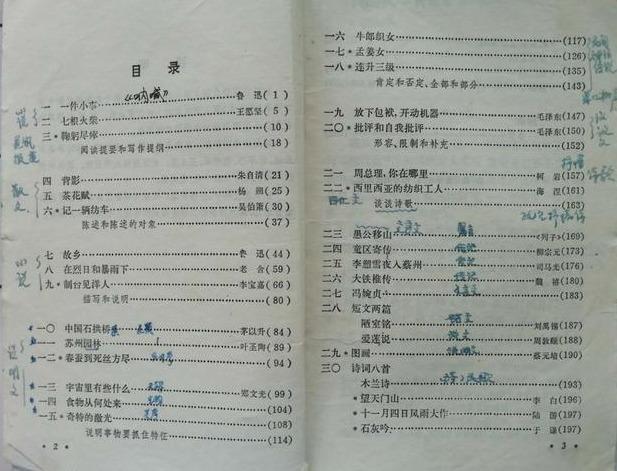 目录
《呐喊》
一 一件小事 鲁迅(1)
二 七根火柴 王愿坚(5)
三*鞠躬尽瘁 (10)
阅读提要和写作提纲 (18)
四 背影 朱自清(21)
五 茶花赋 杨朔(25)
六*记一辆纺车 吴伯箫(30)
陈述和陈述的对象 (37)
七 故乡 鲁迅(44)
八 在烈日和暴雨下 老舍(59)
九*制台见洋人 李宝嘉(66)
描写和说明 (80)
一〇 中国石拱桥 茅以升(84)
一一 苏州园林 叶圣陶(89)
一二*春蚕到死丝方尽 (94)
一三 宇宙里有些什么 郑文光(99)
一四 食物从何处来 (104)
一五*奇特的激光 (108)
说明事物要抓住特征 (114)
小说
散文
小说
说明文
·2·
一六 牛郎织女 (117)
一七*孟姜女 (126)
一八*连升三级 (135)
肯定和否定、全部和部分 (143)
一九 放下包袱,开动机器 毛泽东(147)
二〇*批评和自我批评 毛泽东(150)
形容、限制和补充 (152)
二一 周总理,你在哪里 柯岩(157)
二二*西里西亚的纺织工人 海涅(161)
谈谈诗歌 (163)
二三 愚公移山 《列子》(169)
二四 童区寄传 柳宗元(173)
二五 李愬雪夜入蔡州 司马光(176)
二六 大铁椎传 魏禧(180)
二七 冯婉贞 (183)
二八 短文两篇
陋室铭 刘禹锡(187)
爱莲说 周敦颐(188)
二九*图画 蔡元培(190)
三〇 诗词八首
木兰诗 (193)
*望天门山 李白(196)
*十一月四日风雨大作 陆游(197)
*石灰吟 于谦(197)
·3·